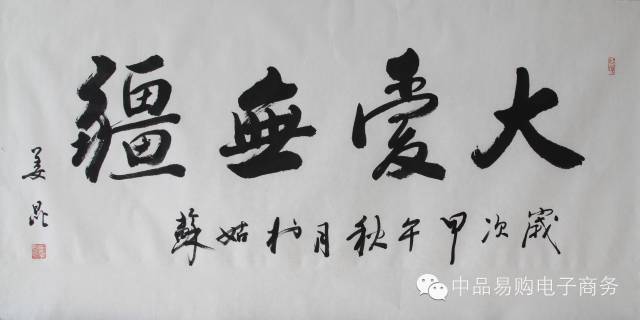 大愛無疆
歲次甲午秋月於姑蘇
姜昆
中品易购电子商务